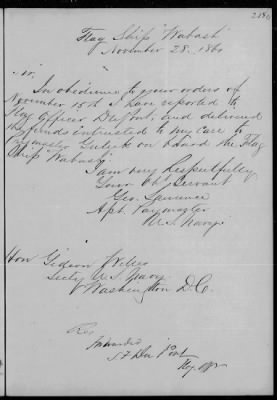 Flag Ship "Wabash"
November 28. 186
Sir,
In obedience to your orders of
November 15th I have reported to
Flag Officer DuPont, and delivered
the funds intrusted to my care to
Paymaster Gulick on board the Flag
Ship "Wabash"
I am very Respectfully
Your Obt Servant
Geo. Lawrence
Asst. Paymaster
U.S. Navy.
Hon Gideon Welles
Secty U.S. Navy
Washington D.C.
Forwarded
S F Du Pont
Flag Offr